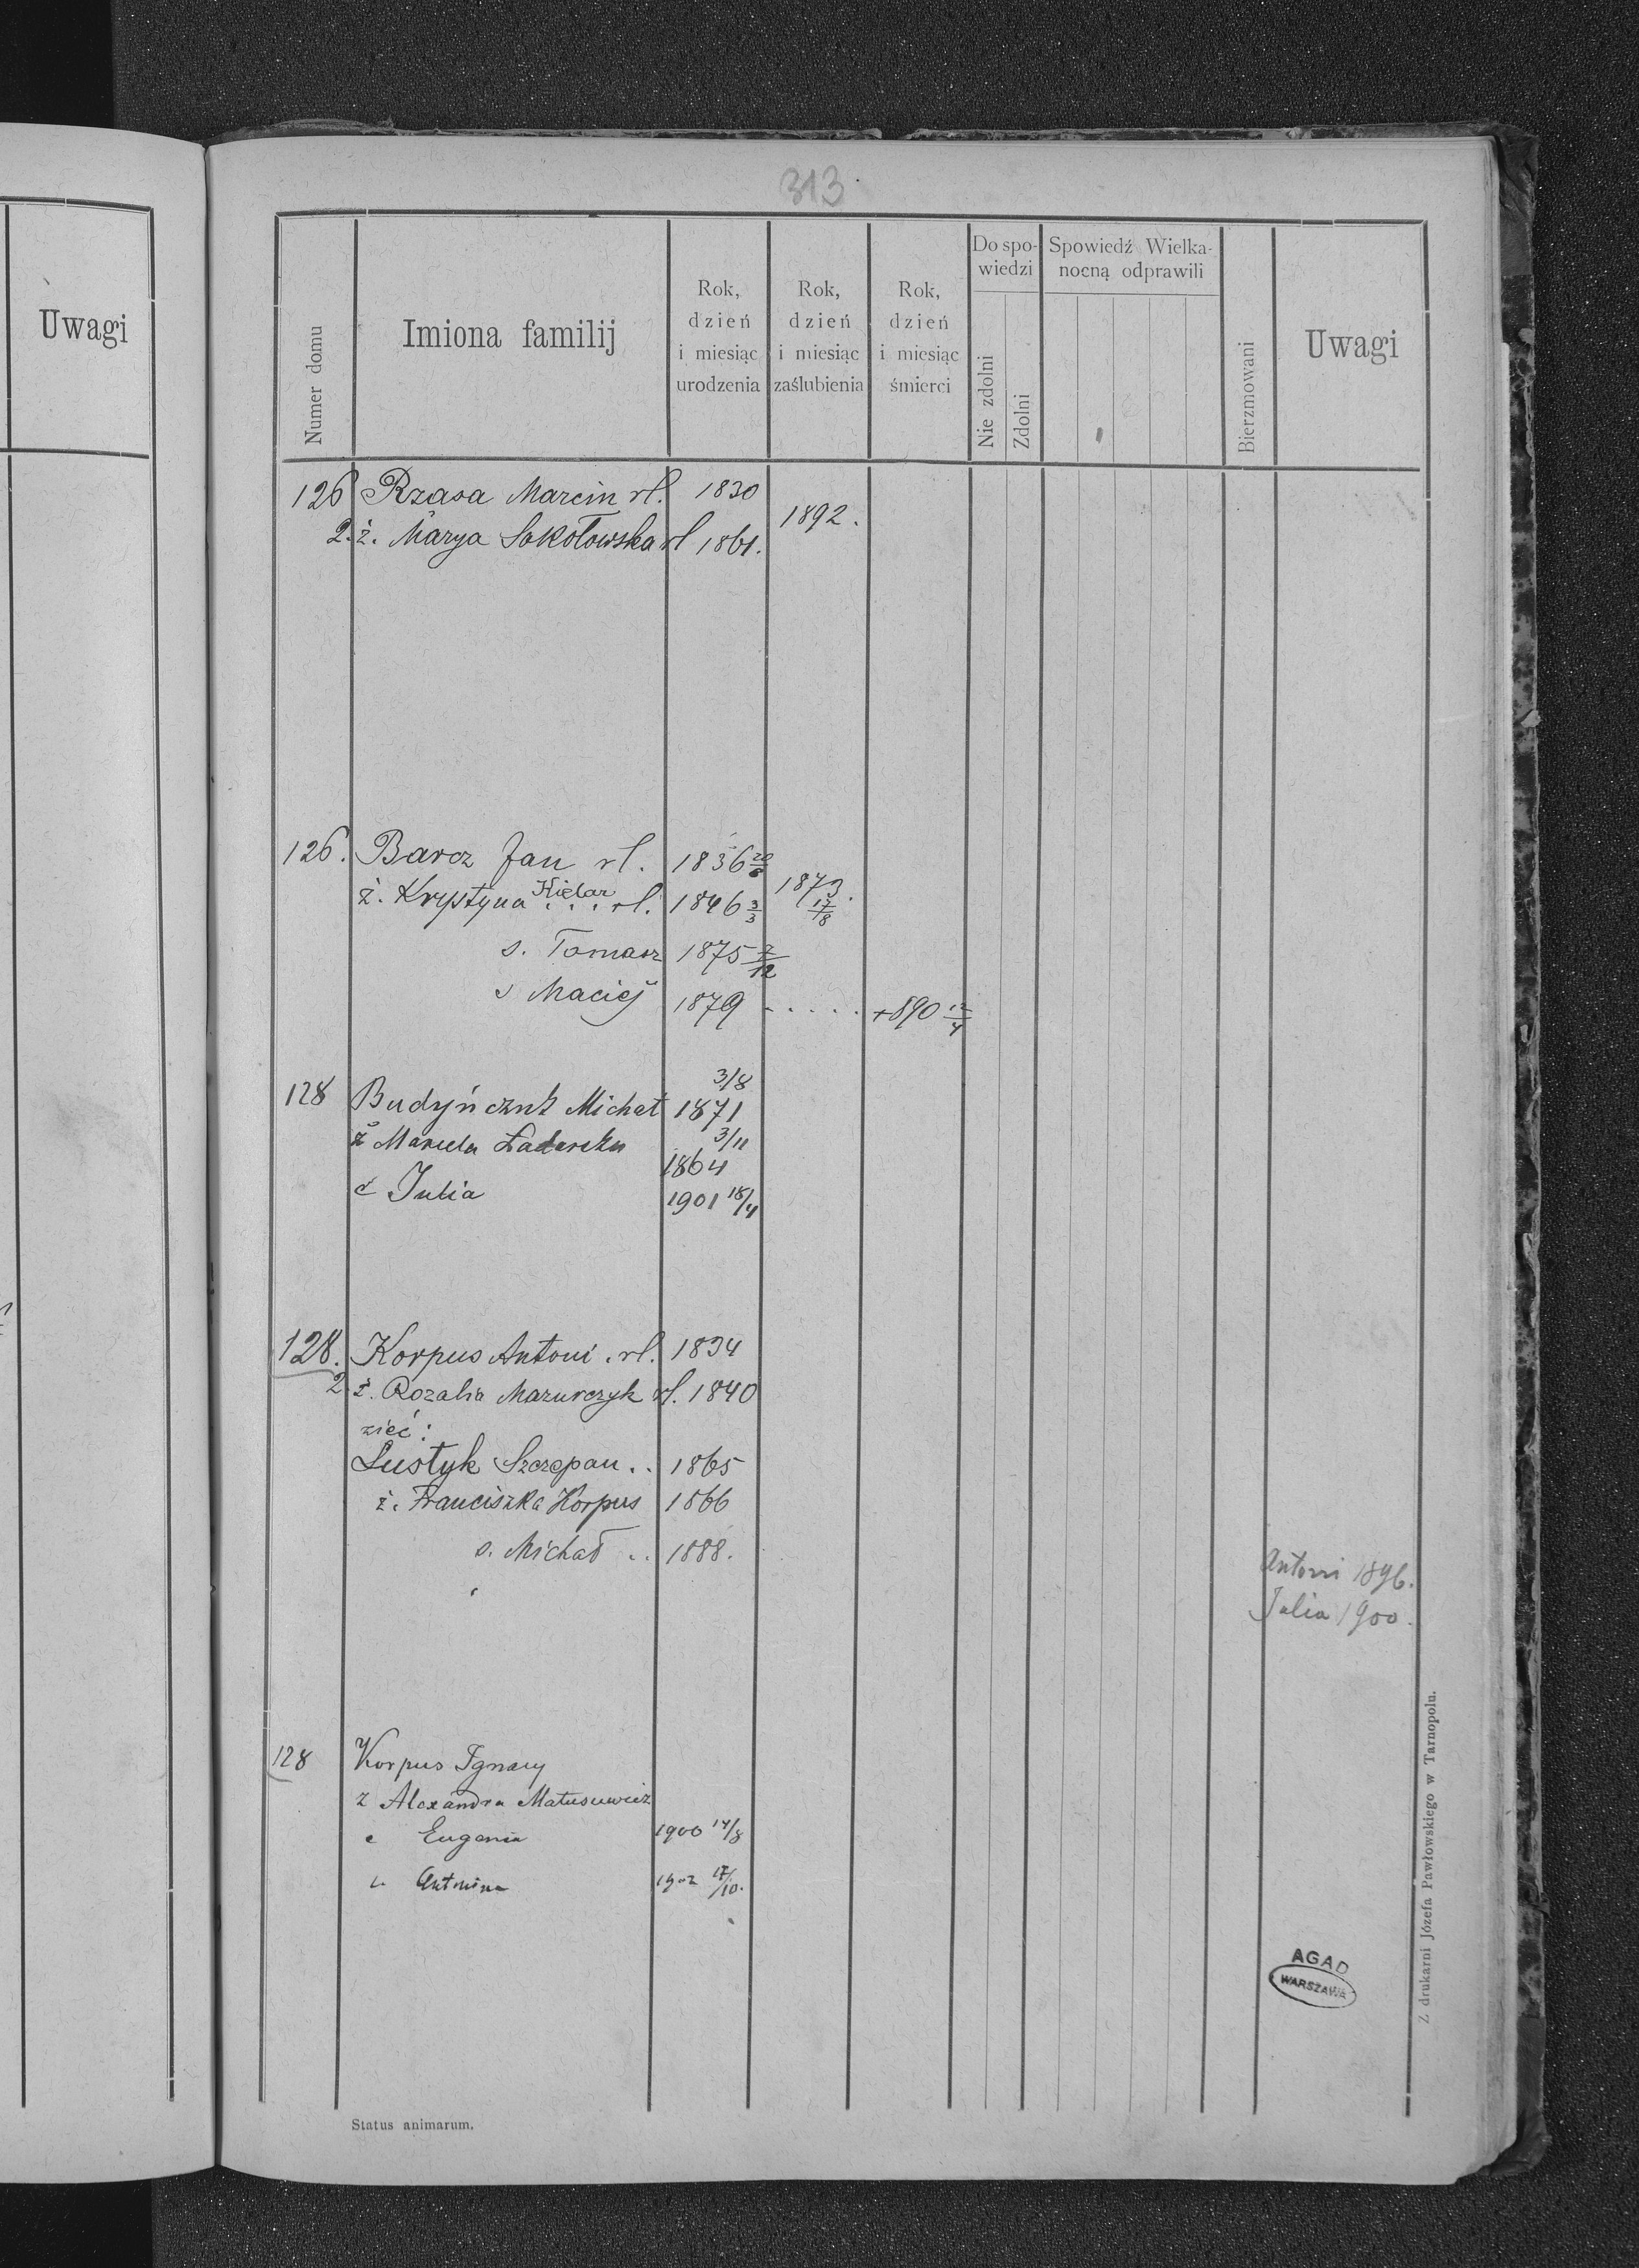 313
Uwagi
Numer domu
Imiona familij
Rok,
dzień
i miesiąc
urodzenia
Rok,
dzień
i miesiąc
zaślubienia
Rok,
dzień
i miesiąc
śmierci
Do spo-
wiedzi
Nie zdolni
Zdolni
Spowiedź Wielka-
nocną odprawili
Bierzmowani
Uwagi
126 Rzasa Marcin rl. 1830
1892.
2. ż. Marya Sokołowska rl 1861.
126. Barcz Jan rl. 1836 20/6
1873. 17/8
ż. Krystyna Kielar . . . rl. 1846 3/3
s. Tomasz 1875 7/12
s Maciej 1879 - . . . . +890 12/4
3/8
128 Budyńczuk Michał 1871
3/11
ż 1864
c Julia 1901 18/4
128. Korpus Antoni . rl. 1834
2 ż. Rozalia Mazurczyk rl. 1840
zięć:
Lustyk Szczepan . . 1865
ż. Franciszka Korpus 1866
s. Michał . . 1888.
Antoni 1896.
Julia 1900.
128 Korpus Ignacy
ż Alexandra Matusewicz
c Eugenia 1900 14/8
c. Antonina 1902 17/10.
AGAD
WARSZAWA
Status animarum.
Z drukarni Józefa Pawłowskiego w Tarnopolu.